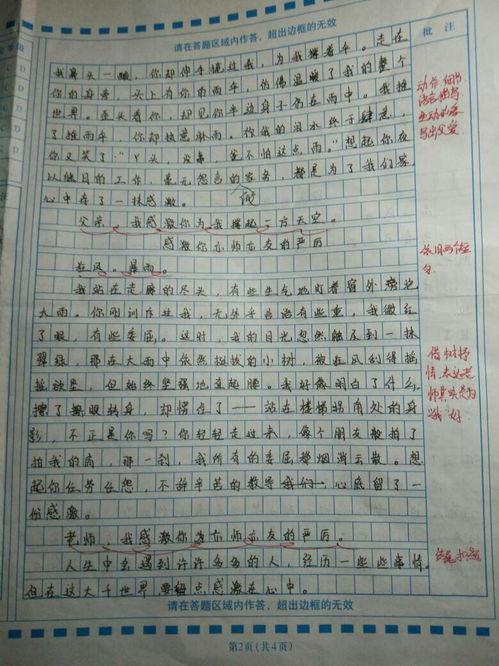 请在答题区域内作答，超出边框的无效
批 注
我鼻头一酸，你却伸手搂过我，为我撑着伞。走在
你的身旁，头上为你的雨伞，仿佛温暖了我的整个
世界。歪头看你，却见你半边身子仍在雨中。我推
了推雨伞，你却执意淋雨。你我的泪水终于肆意，
你又笑了："丫头，没事，爸不怕这点雨。"想起你夜
以继日的工作，毫无怨言的家务，都是为了我们家
心中存了一抹感激。
父亲，我感激你为我撑起一方天空。
感激你亦师亦友的严厉
狂风。暴雨。
我站在走廊的尽头，有些生气地盯着窗外
大雨。你刚训斥过我，无外乎言语有些重，我微红
了眼，有些委屈。这时，我的目光忽然触及到一抹
翠绿，那在大雨中依然挺拔的小树，被狂风刮得摇
摇欲坠，但始终坚强地直起腰。我好像明白了什么，
擦了擦眼转身，却愣在了——站在楼梯拐角处的身
影，不正是你吗？你轻轻走过来，像个朋友般拍了
拍我的肩，那一刹，我所有的委屈都烟消云散。想
起你任劳任怨，不辞辛苦的教导我们，心底留了一
份感激。
老师，我感激你亦师亦友的严厉。
人生中会遇到许许多多的人，经历一些些事情。
但在这大千世界，要细点感激在心中。
动作 细节
语言描写
生动形容
写出父爱
借树抒
情，表达老
师其实是为
我好
请在答题区域内作答，超出边框的无效
第2页（共4页）